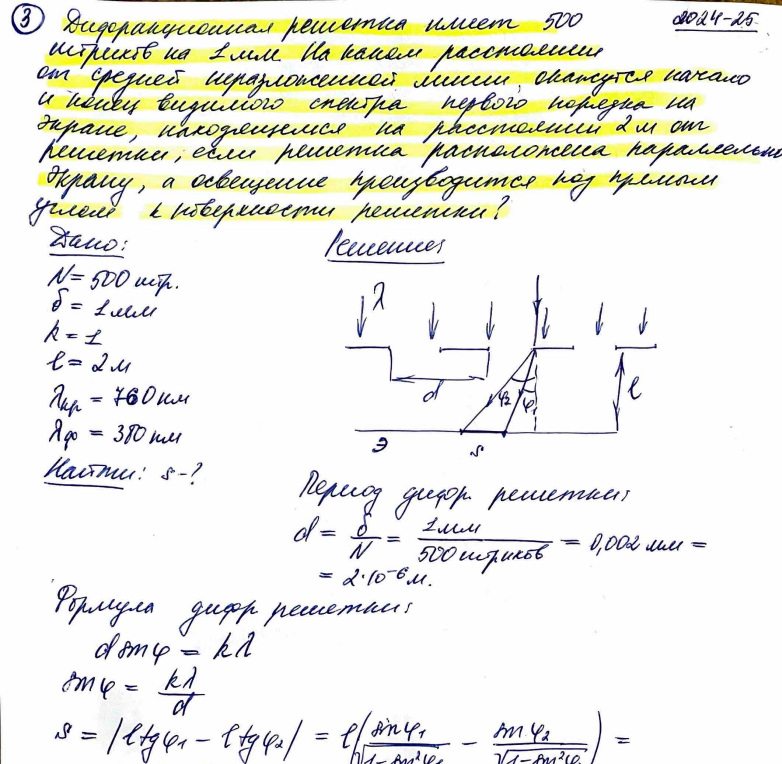 ③ Дифракционная решетка имеет 500 2024-25
штрихов на 1 мм. На каком расстоянии
от средней неразложенной линии окажутся начало
и конец видимого спектра первого порядка на
экране, находящемся на расстоянии 2 м от
решетки, если решетка расположена параллельно
экрану, а освещение производится под прямым
углом к поверхности решетки?
Дано: Решение:
N = 500 штр.
δ = 1 мм
k = 1
l = 2 м
λкр = 760 нм
λф = 380 нм
Найти: s - ?
λ
d φ₂ φ₁ l
Э s
Период дифр. решетки:
d = δ/N = 1 мм/500 штрихов = 0,002 мм =
= 2·10⁻⁶ м.
Формула дифр решетки:
d sin φ = kλ
sin φ = kλ/d
s = |l tg φ₁ − l tg φ₂| = l(sin φ₁/√(1−sin²φ₁) − sin φ₂/√(1−sin²φ₂)) =